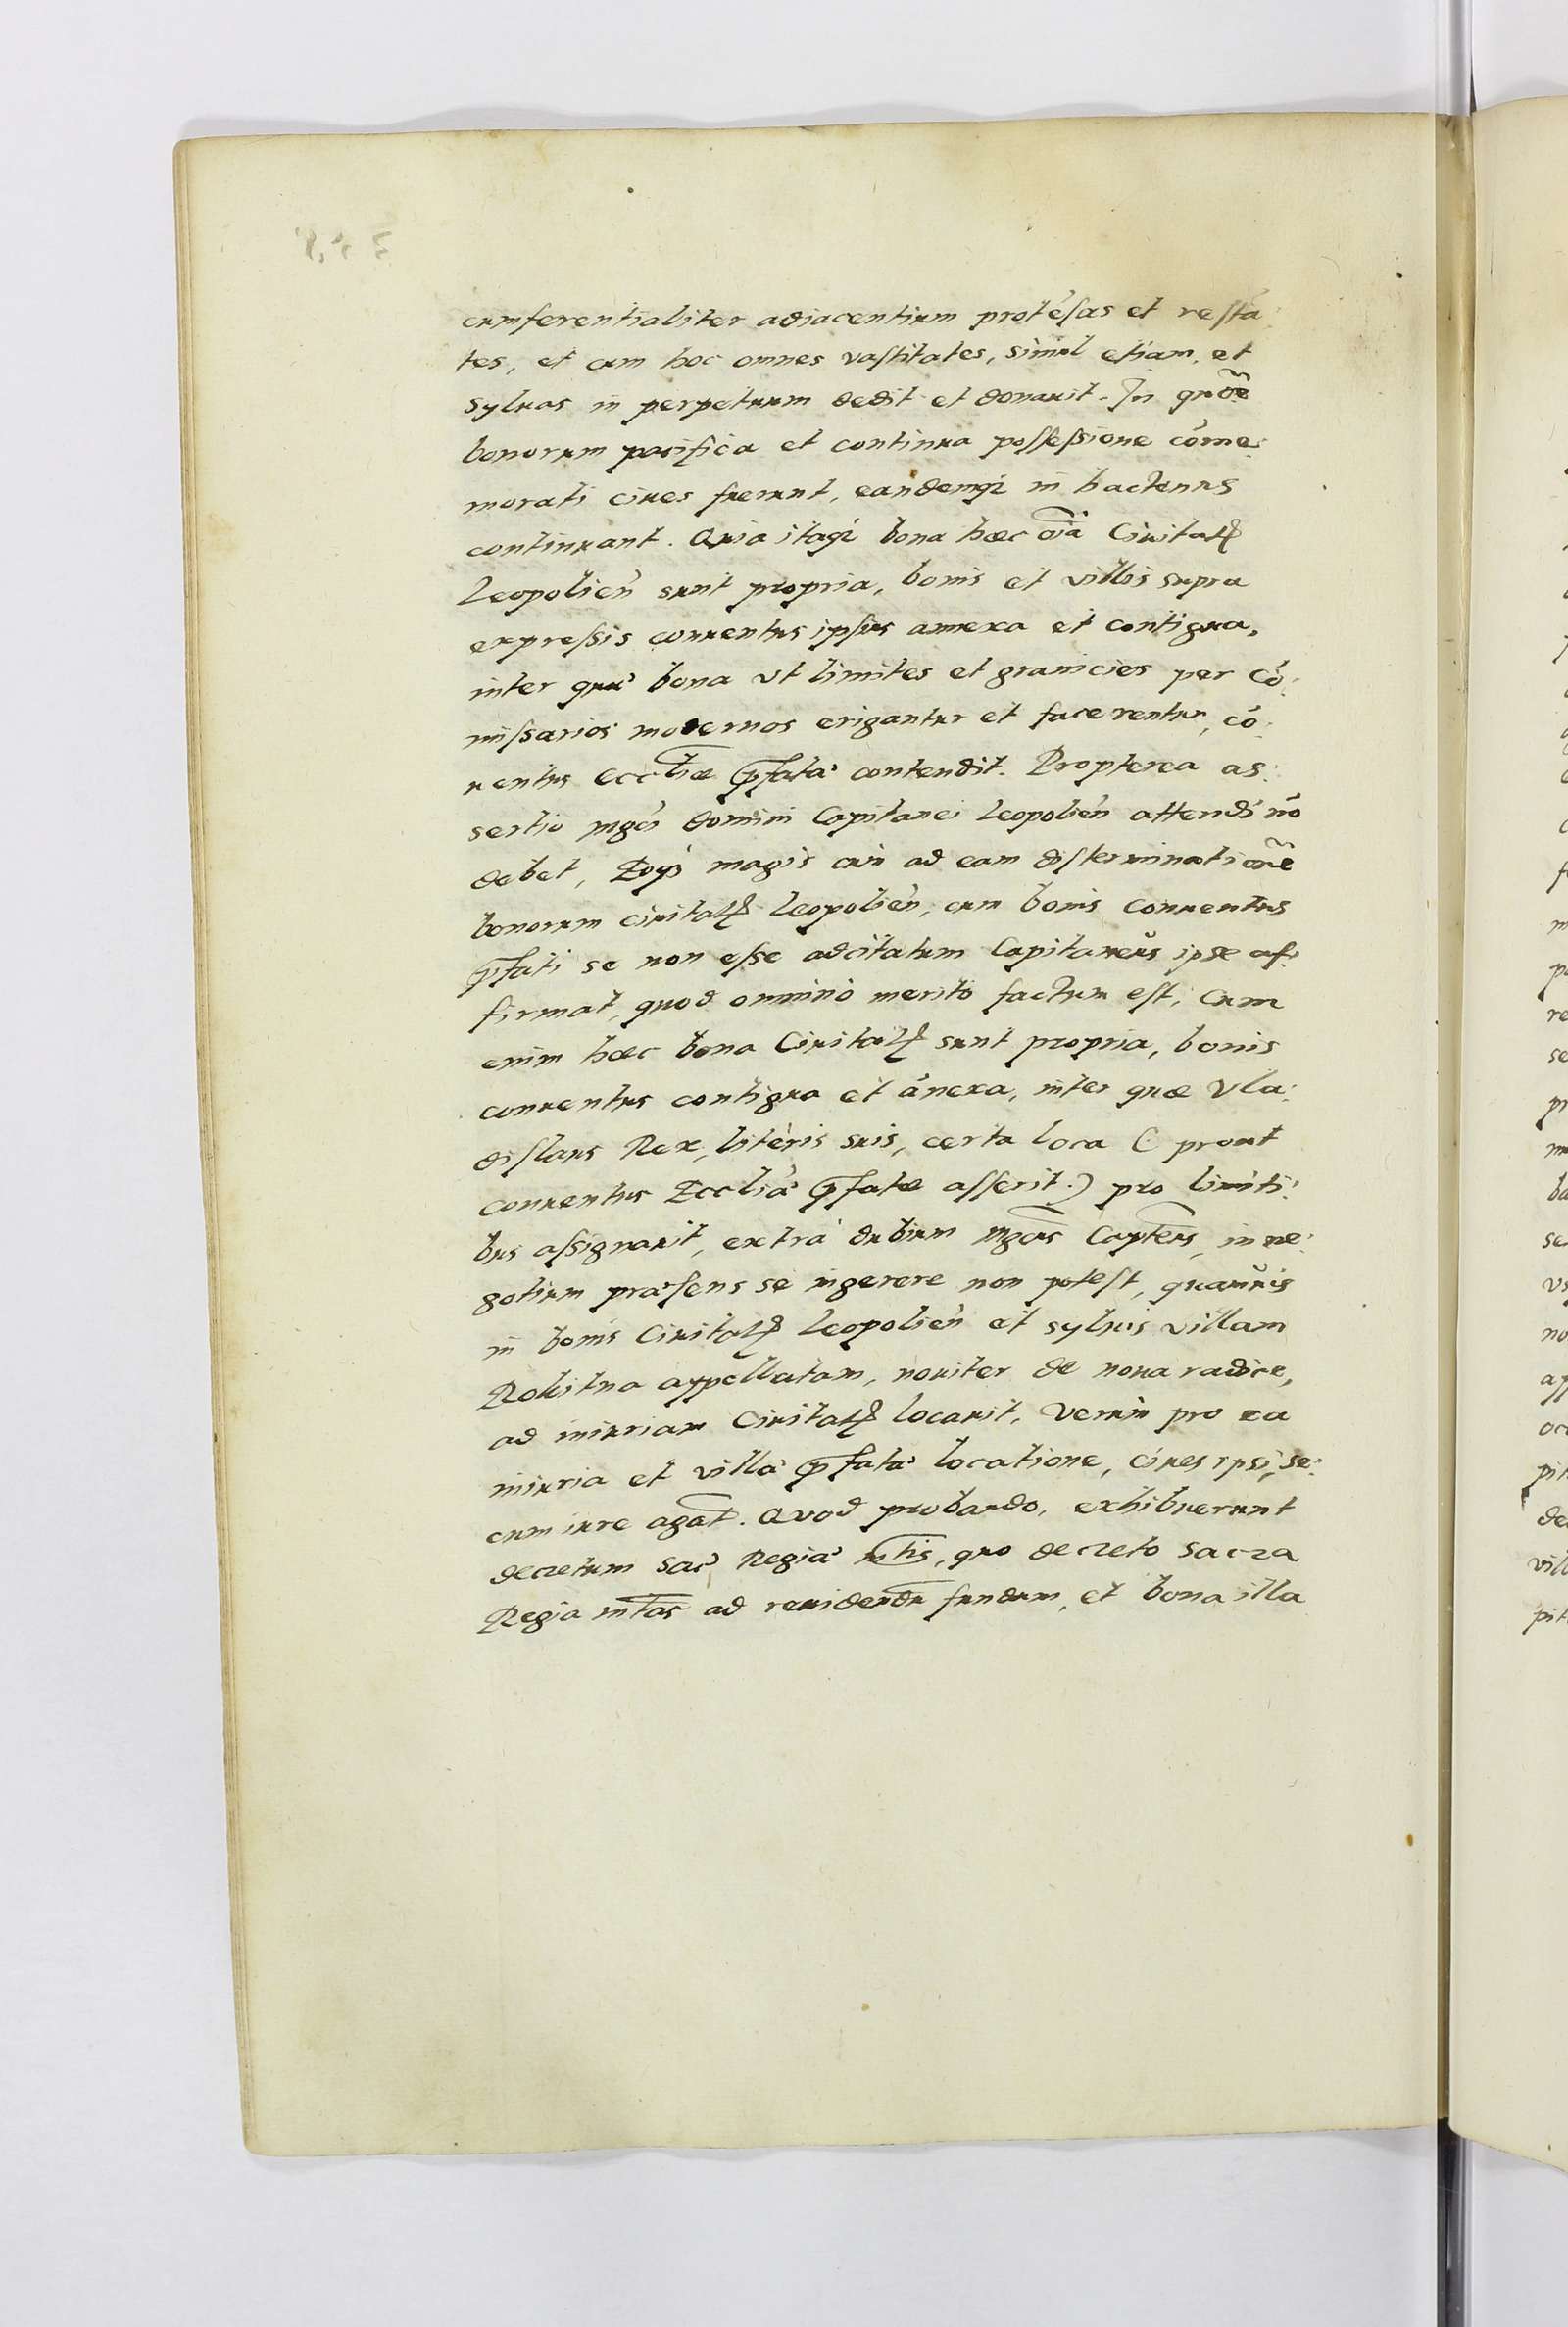 cumferentialiter adiacentium proté̃sas et resta:
tes, et cum hoc omnes vastitates, simul etiam, et
Syluas in perpetuum dedit et donauit. In quor̃
bonorum pacifica et continua possessione cõme:
morati ciues fuerunt, eandemq; in hactenus
continuant. Quia itaq; bona hæc oĩa Ciuitatꝭ
Leopolien̄ sunt propria, bonis et villis supra
expressis conuentus ipsius annexa et contigua,
inter quæ bona vt limites et granicies per Cõ:
missarios modernos erigantur et facerentur, cõ:
uentus eccl̃iæ p̃fatæ contendit. Propterea as:
sertio mgcĩ domini Capitanei Leopolien̄ attendi nõ
debet, Eoq; magis cum ad eam disterminationẽ
bonorum ciuitatꝭ Leopolien̄, cum bonis conuentus
p̃fati se non esse adcitatum Capitaneus ipse af:
firmat, quod omnino merito factum est, Cum
enim hæc bona Ciuitatꝭ sunt propria, bonis
conuentus contigua et ãnexa, inter quæ Vla:
dislaus Rex, literis suis, certa loca (prout
conuentus Eccliæ p̃fatæ asserit.) pro limiti:
bus assignauit, extra dubium mgcus Captẽus, in ne:
gotium præsens se ingerere non potest, quamuis
in bonis Ciuitatꝭ Leopolien̄ et syluis villam
Rokitna appellatam, nouiter de noua radice,
ad iniuriam Ciuitatꝭ locauit, Verum pro ea
iniuria et villæ p̃fatæ locatione, ciues ipsi, se:
cum iure agãt. Quod probando, exhibuerunt
decretum Sac̃ Regiæ m̃tis, quo decreto Sacra
Regia m̃tas ad reuidendũ fundum, et bona illa